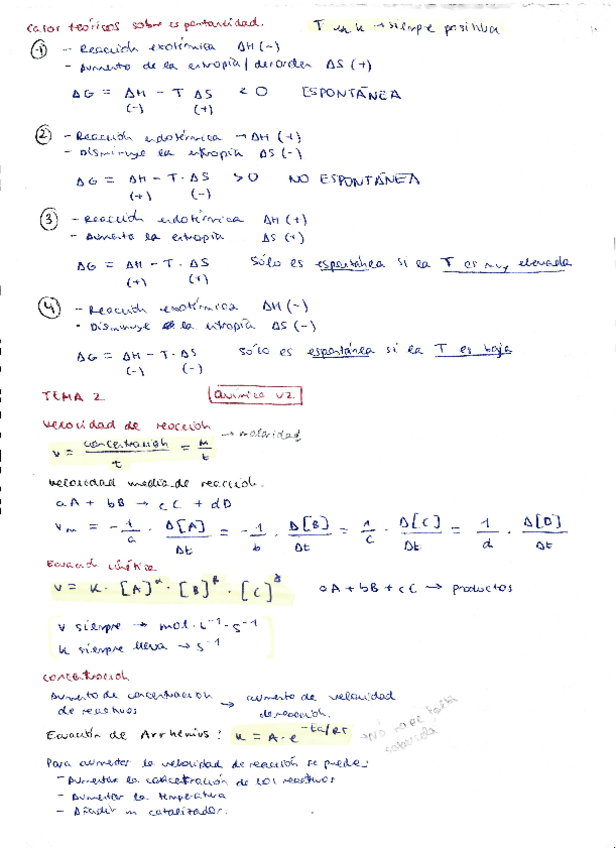 Casos teóricos sobre espontaneidad. T en K → siempre positiva
1 - Reacción exotérmica ΔH (-)
- Aumento de la entropía/desorden ΔS (+)
ΔG = ΔH - T ΔS < 0 ESPONTÁNEA
(-) (+)
2 - Reacción endotérmica → ΔH (+)
- Disminuye la entropía ΔS (-)
ΔG = ΔH - T · ΔS > 0 NO ESPONTÁNEA
(+) (-)
3 - Reacción endotérmica ΔH (+)
- Aumenta la entropía ΔS (+)
ΔG = ΔH - T · ΔS Sólo es espontánea si la T es muy elevada
(+) (+)
4 - Reacción exotérmica ΔH (-)
- Disminuye la entropía ΔS (-)
ΔG = ΔH - T · ΔS Sólo es espontánea si la T es baja
(-) (-)
TEMA 2 Química V2
Velocidad de reacción
v = concentración / t = M / t → molaridad
Velocidad media de reacción.
aA + bB → cC + dD
Vm = - 1/a · Δ[A]/Δt = - 1/b · Δ[B]/Δt = 1/c · Δ[C]/Δt = 1/d · Δ[D]/Δt
Ecuación cinética
v = K · [A]^α · [B]^β · [C]^γ aA + bB + cC → productos
v siempre → mol · L⁻¹ · s⁻¹
k siempre lleva → s⁻¹
Concentración
Aumento de concentración → aumento de velocidad
de reactivos de reacción.
Ecuación de Arrhenius: K = A · e^-Ea/RT → No hace falta
sabersela
Para aumentar la velocidad de reacción se puede:
- Aumentar la concentración de los reactivos
- Aumentar la temperatura
- Añadir un catalizador.